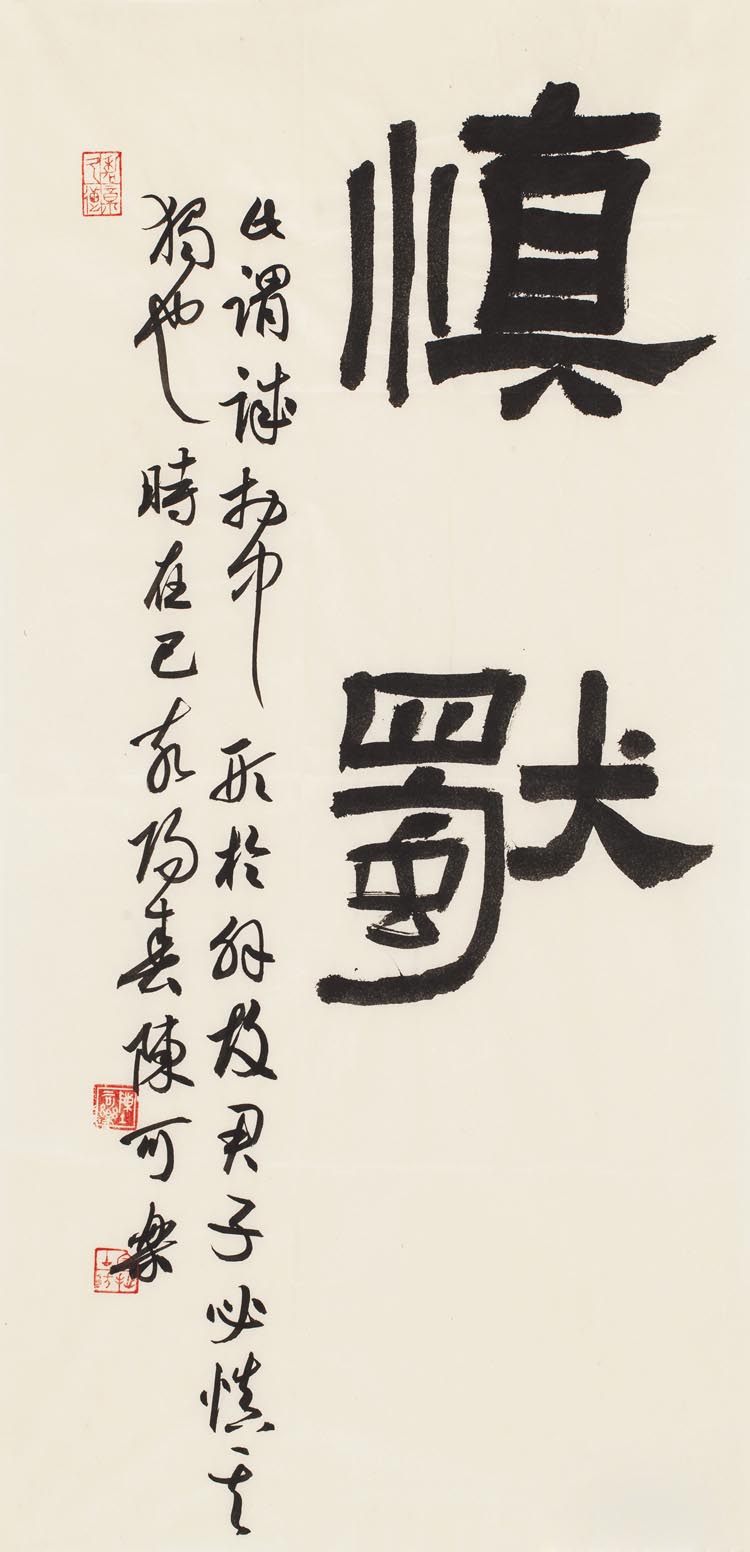 慎獨
此謂誠於中形於外故君子必慎其
獨也時在己亥陽春陳可樂